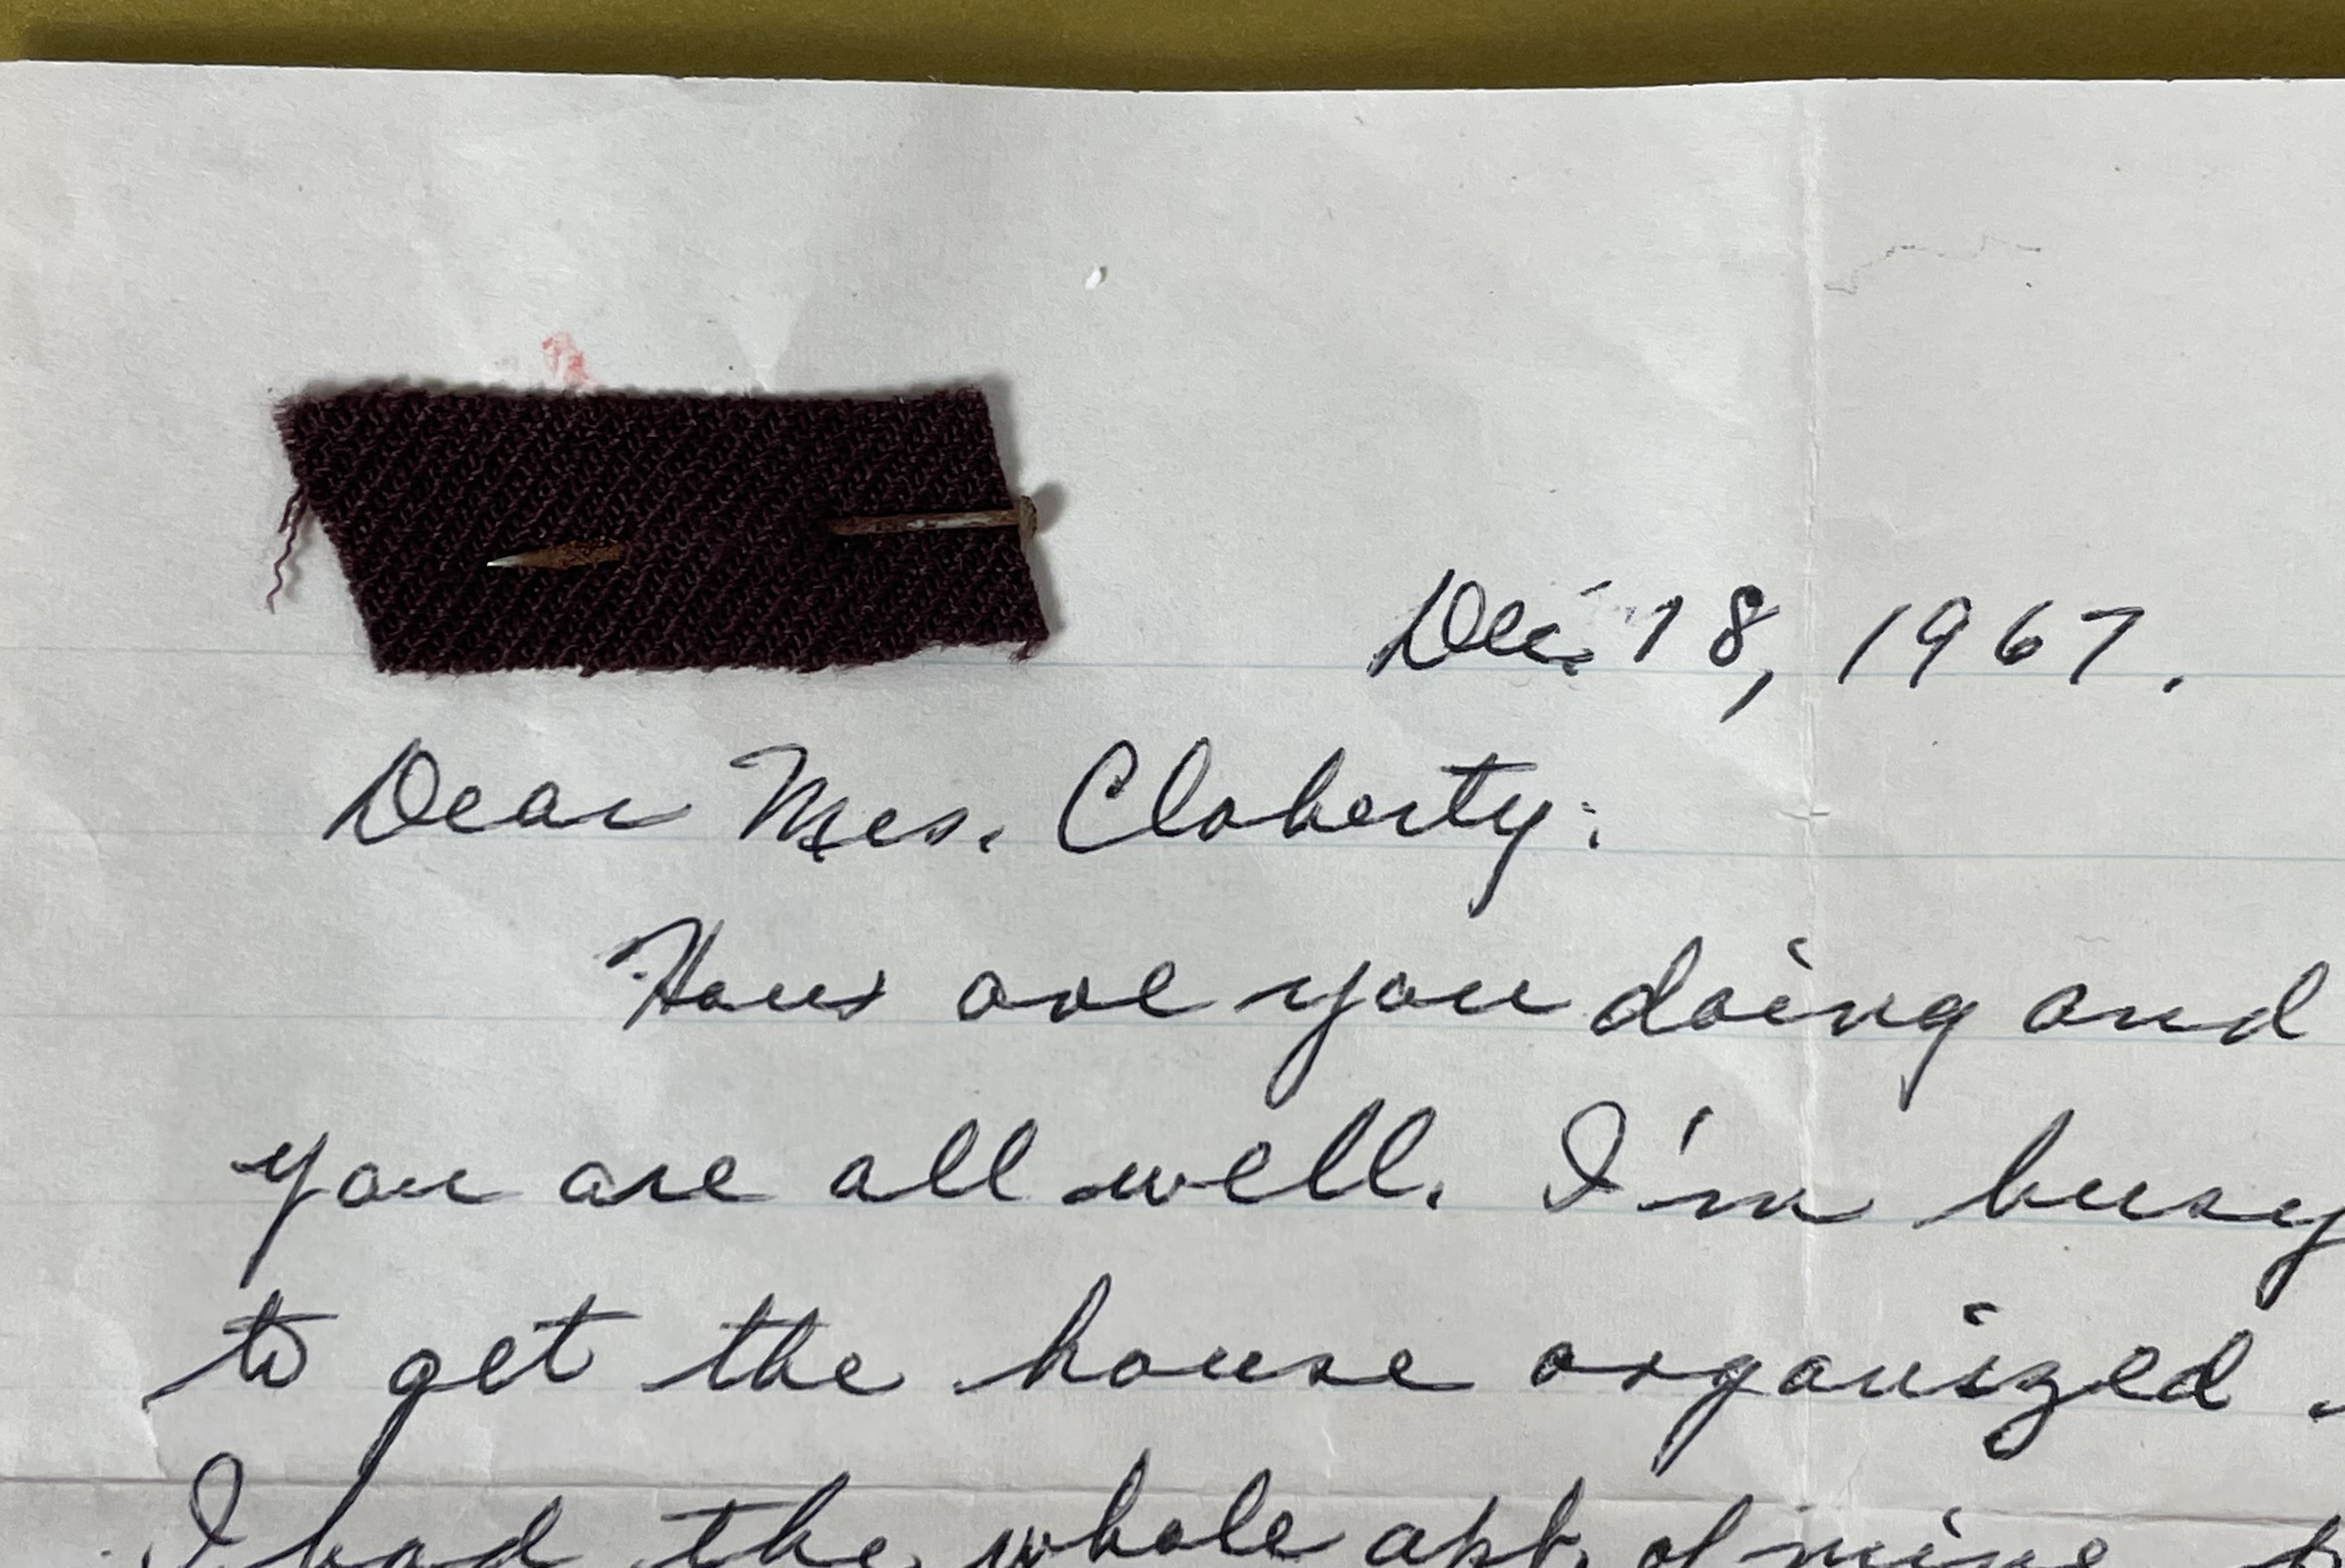 Dec. 18, 1967.
Dear Mrs. Cloherty:
How are you doing and
you are all well. I'm busy
to get the house organized
I had the whole apt. of mine